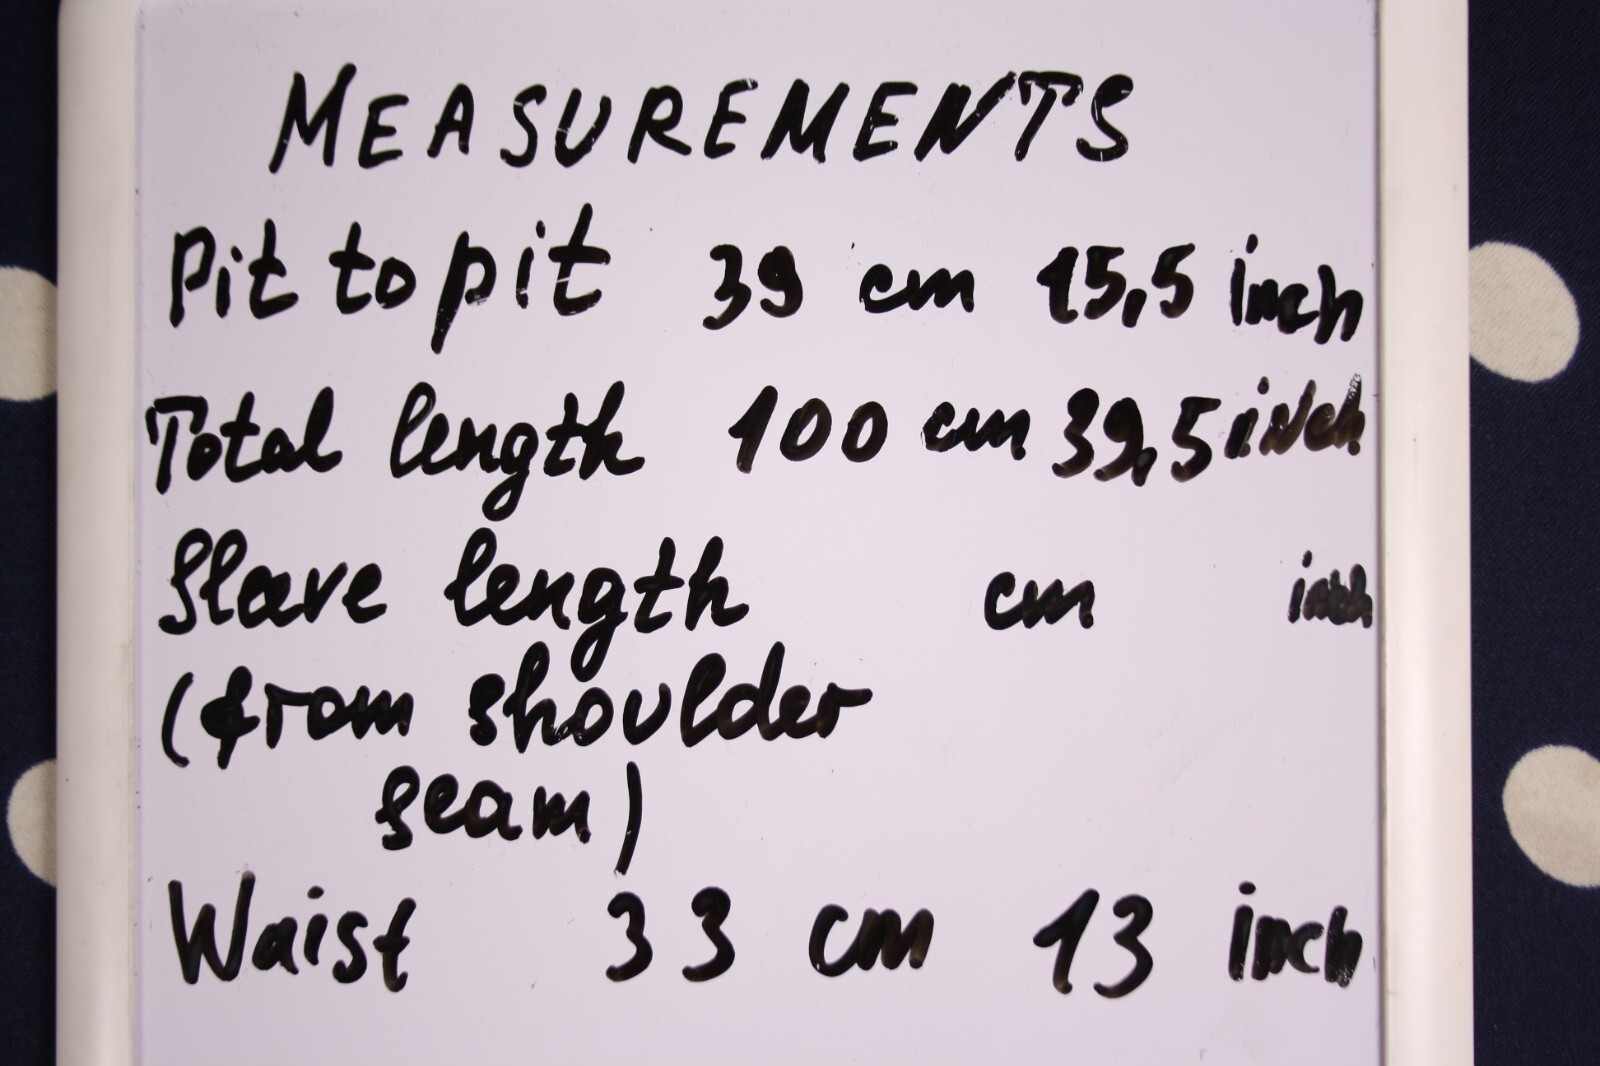 MEASUREMENTS
Pit to pit 39 cm 15,5 inch
Total length 100 cm 39,5 inch
Slave length cm inch
(from shoulder
seam)
Waist 33 cm 13 inch